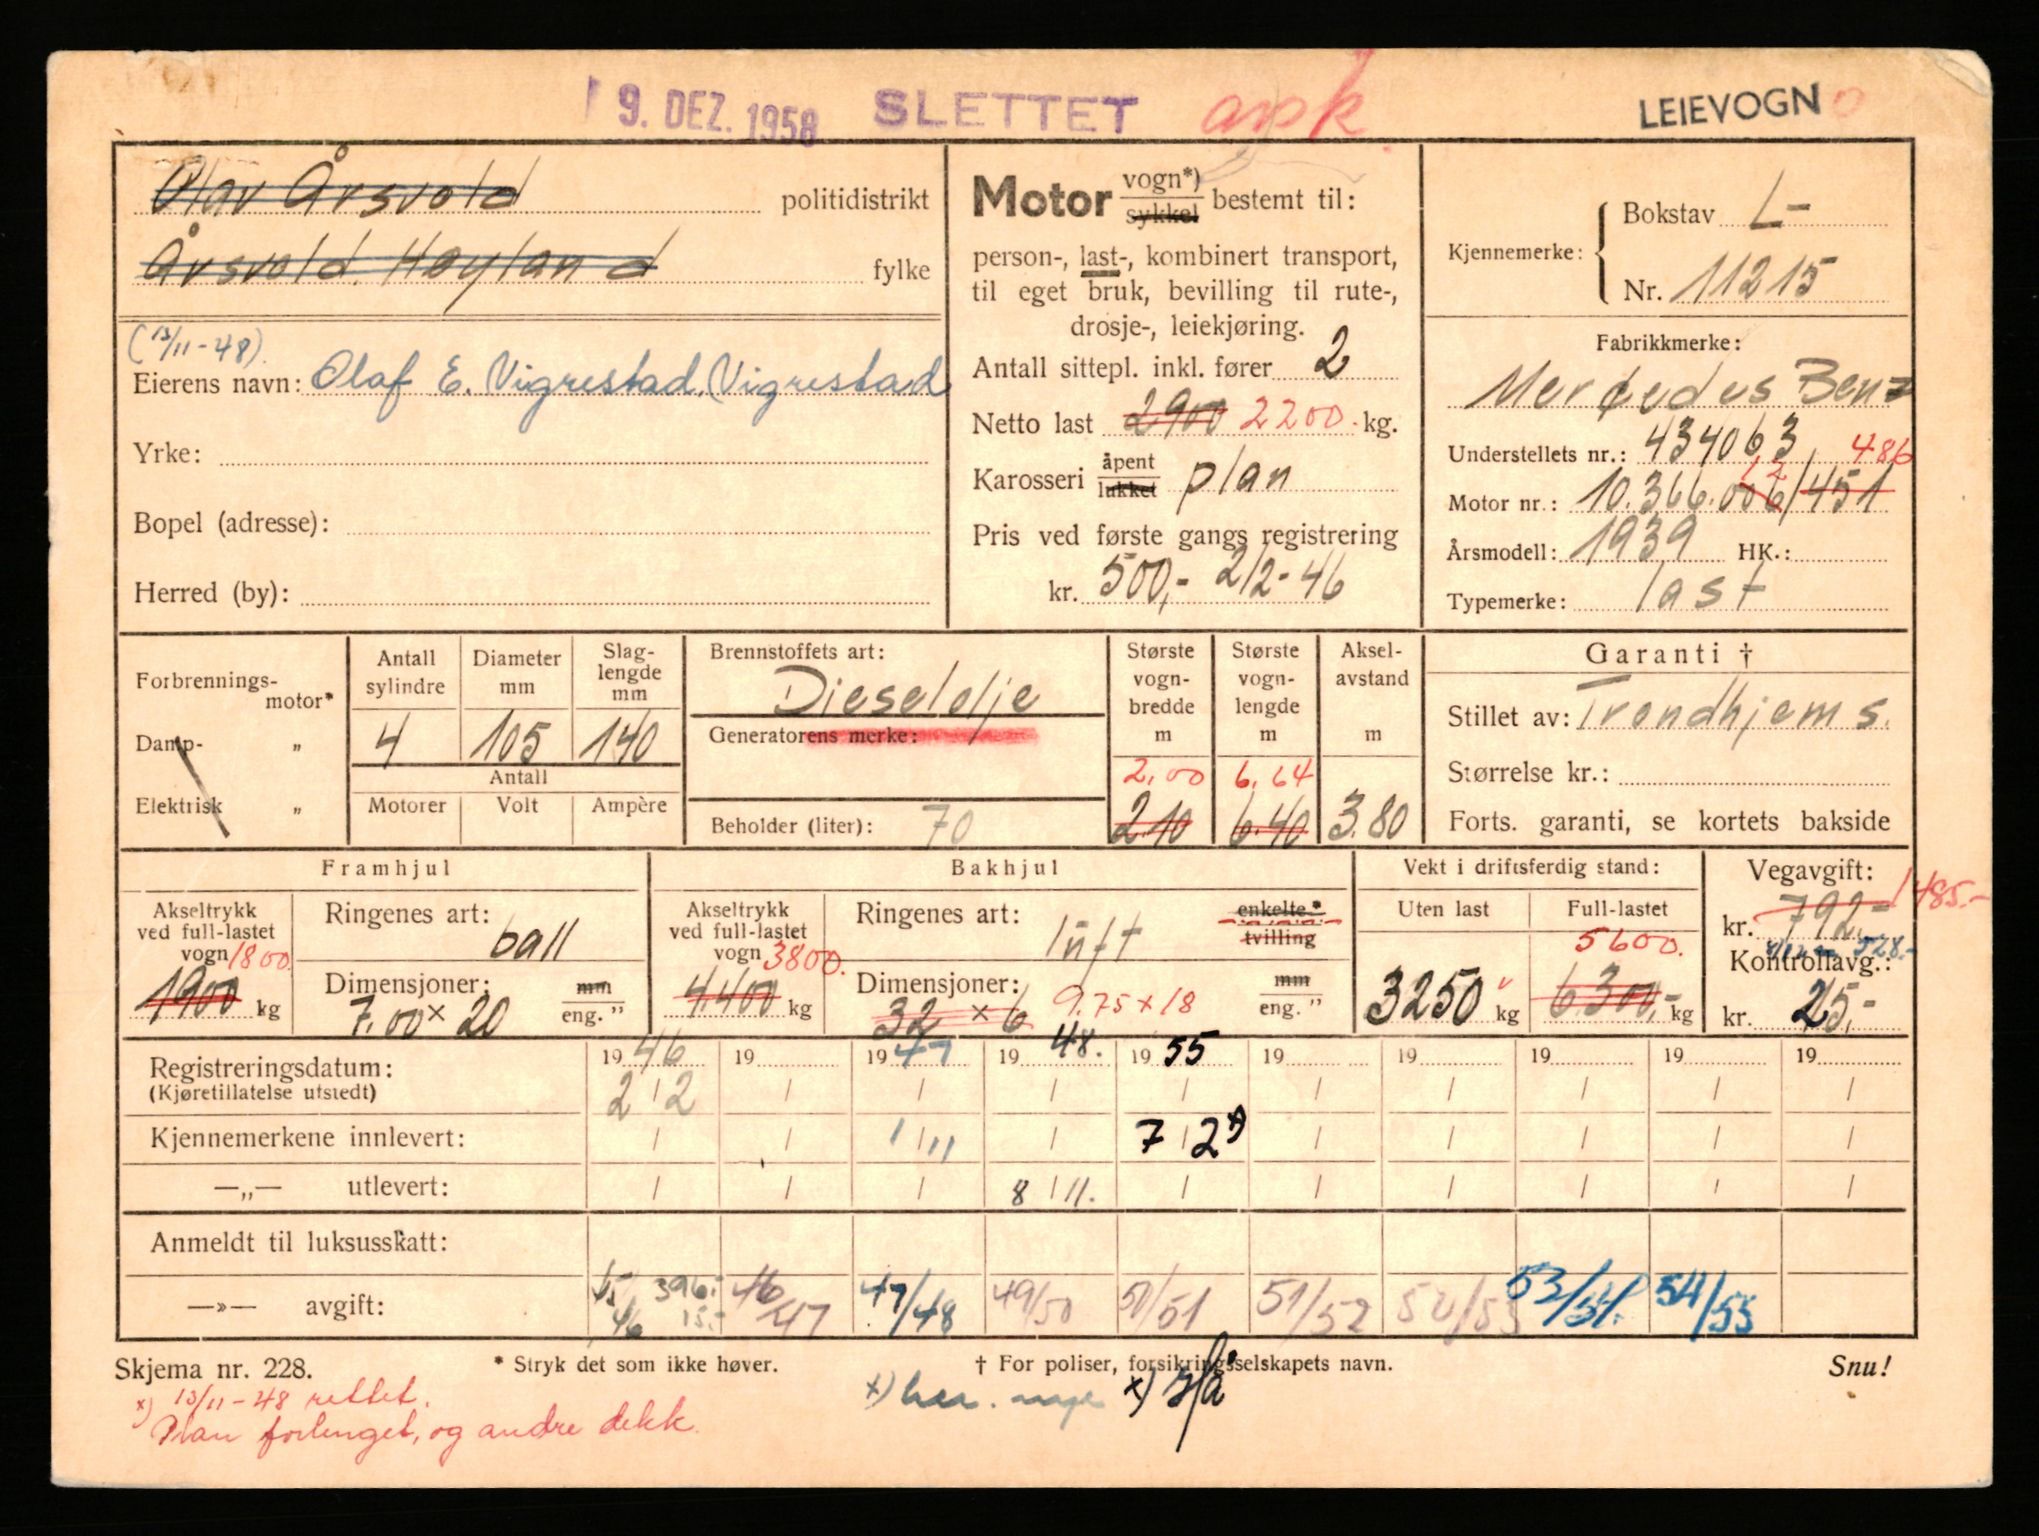 9. DEZ. 1958 SLETTET LEIEVOGN
Olav Årsvold politidistrikt
Årsvold. Høyland fylke
(13/11-48)
Eierens navn: Olaf E. Vigrestad. Vigrestad
Yrke:
Bopel (adresse):
Herred (by):
Motor vogn*) sykkel bestemt til:
person-, last-, kombinert transport,
til eget bruk, bevilling til rute-,
drosje-, leiekjøring.
Antall sittepl. inkl. fører 2
Netto last 2900 2200 kg.
Karosseri åpent lukket plan
Pris ved første gangs registrering
kr. 500,- 2/2-46
Kjennemerke: Bokstav L-
Nr. 11215
Fabrikkmerke:
Mercedes Benz
Understellets nr.: 434063
486
Motor nr.: 10.366.006/451
Årsmodell: 1939 HK.:
Typemerke: last
Forbrennings-
motor*
Damp- „
Elektrisk „
Antall sylindre
4
Diameter mm
105
Slag-
lengde
mm
140
Antall
Motorer Volt Ampère
Brennstoffets art:
Dieselolje
Generatorens merke:
Beholder (liter): 70
Største
vogn-
bredde
m
2.00
2.10
Største
vogn-
lengde
m
6.64
6.40
Aksel-
avstand
m
3.80
Garanti †
Stillet av: Trondhjems.
Størrelse kr.:
Forts. garanti, se kortets bakside
Framhjul
Akseltrykk
ved full-lastet
vogn 1800
1900 kg
Ringenes art:
ball
Dimensjoner: mm
7.00 x 20 eng. "
Bakhjul
Akseltrykk
ved full-lastet
vogn 3800.
4.400 kg
Ringenes art: enkelte.*
luft tvilling
Dimensjoner: mm
32 x 6 9.75 x 18 eng. "
Vekt i driftsferdig stand:
Uten last Full-lastet
5600.
3250 kg 6300,- kg
Vegavgift:
kr. 792,- 485.-
528.-
Kontrollavg.:
kr. 25,-
Registreringsdatum: 1946 19 1947 1948. 1955 19 19 19 19 19
(Kjøretillatelse utstedt) 2/2 / / / / / / / / /
Kjennemerkene innlevert: / / 1/11 / 7/2 x) / / / / /
—„— utlevert: / / / 8/11. / / / / / /
Anmeldt til luksusskatt:
—»— avgift: 45/46 396.- 15.- 46/47 47/48 49/50 50/51 51/52 52/53 53/54. 54/55
Skjema nr. 228. * Stryk det som ikke høver. † For poliser, forsikringsselskapets navn. Snu!
x) 13/11-48 rettet.
Plan forlenget, og andre dekk.